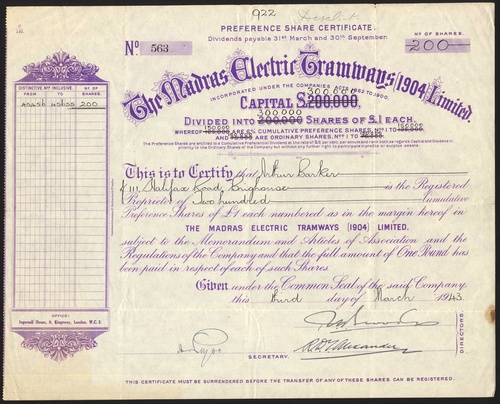 922
PREFERENCE SHARE CERTIFICATE.
Dividends payable 31st March and 30th September.
No 563
No OF SHARES.
200
The Madras Electric Tramways (1904) Limited.
INCORPORATED UNDER THE COMPANIES ACTS 1862 TO 1900.
300,000
CAPITAL £200,000,
300000
DIVIDED INTO 200,000 SHARES OF £1 EACH.
150,000
150,000
The Preference Shares are entitled to a Cumulative Preferential Dividend at the rate of 6 per cent. per annum and rank both as regards Capital and Dividend in
priority to the Ordinary Shares of the Company but without any further right to participate in profits or surplus assets
DISTINCTIVE Nos INCLUSIVE.
No OF
FROM
TO
SHARES
200
This is to Certify that Arthur Barker
of 111, Halifax Road, Brighouse is the Registered
Proprietor of Two hundred Cumulative
Preference Shares of £1 each numbered as in the margin hereof in
THE MADRAS ELECTRIC TRAMWAYS (1904) LIMITED,
subject to the Memorandum and Articles of Association and the
Regulations of the Company and that the full amount of One Pound has
been paid in respect of each of such Shares.
Given under the Common Seal of the said Company,
this third day of March 1943.
OFFICE:
Ingersoll House, 9, Kingsway, London, W.C.2.
DIRECTORS.
SECRETARY.
THIS CERTIFICATE MUST BE SURRENDERED BEFORE THE TRANSFER OF ANY OF THESE SHARES CAN BE REGISTERED.